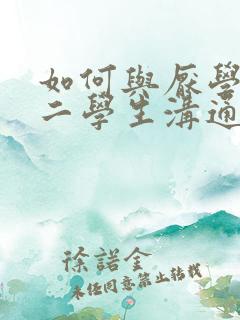 如何與厭學
二學生溝通
徐諾金
未经同意禁止转载